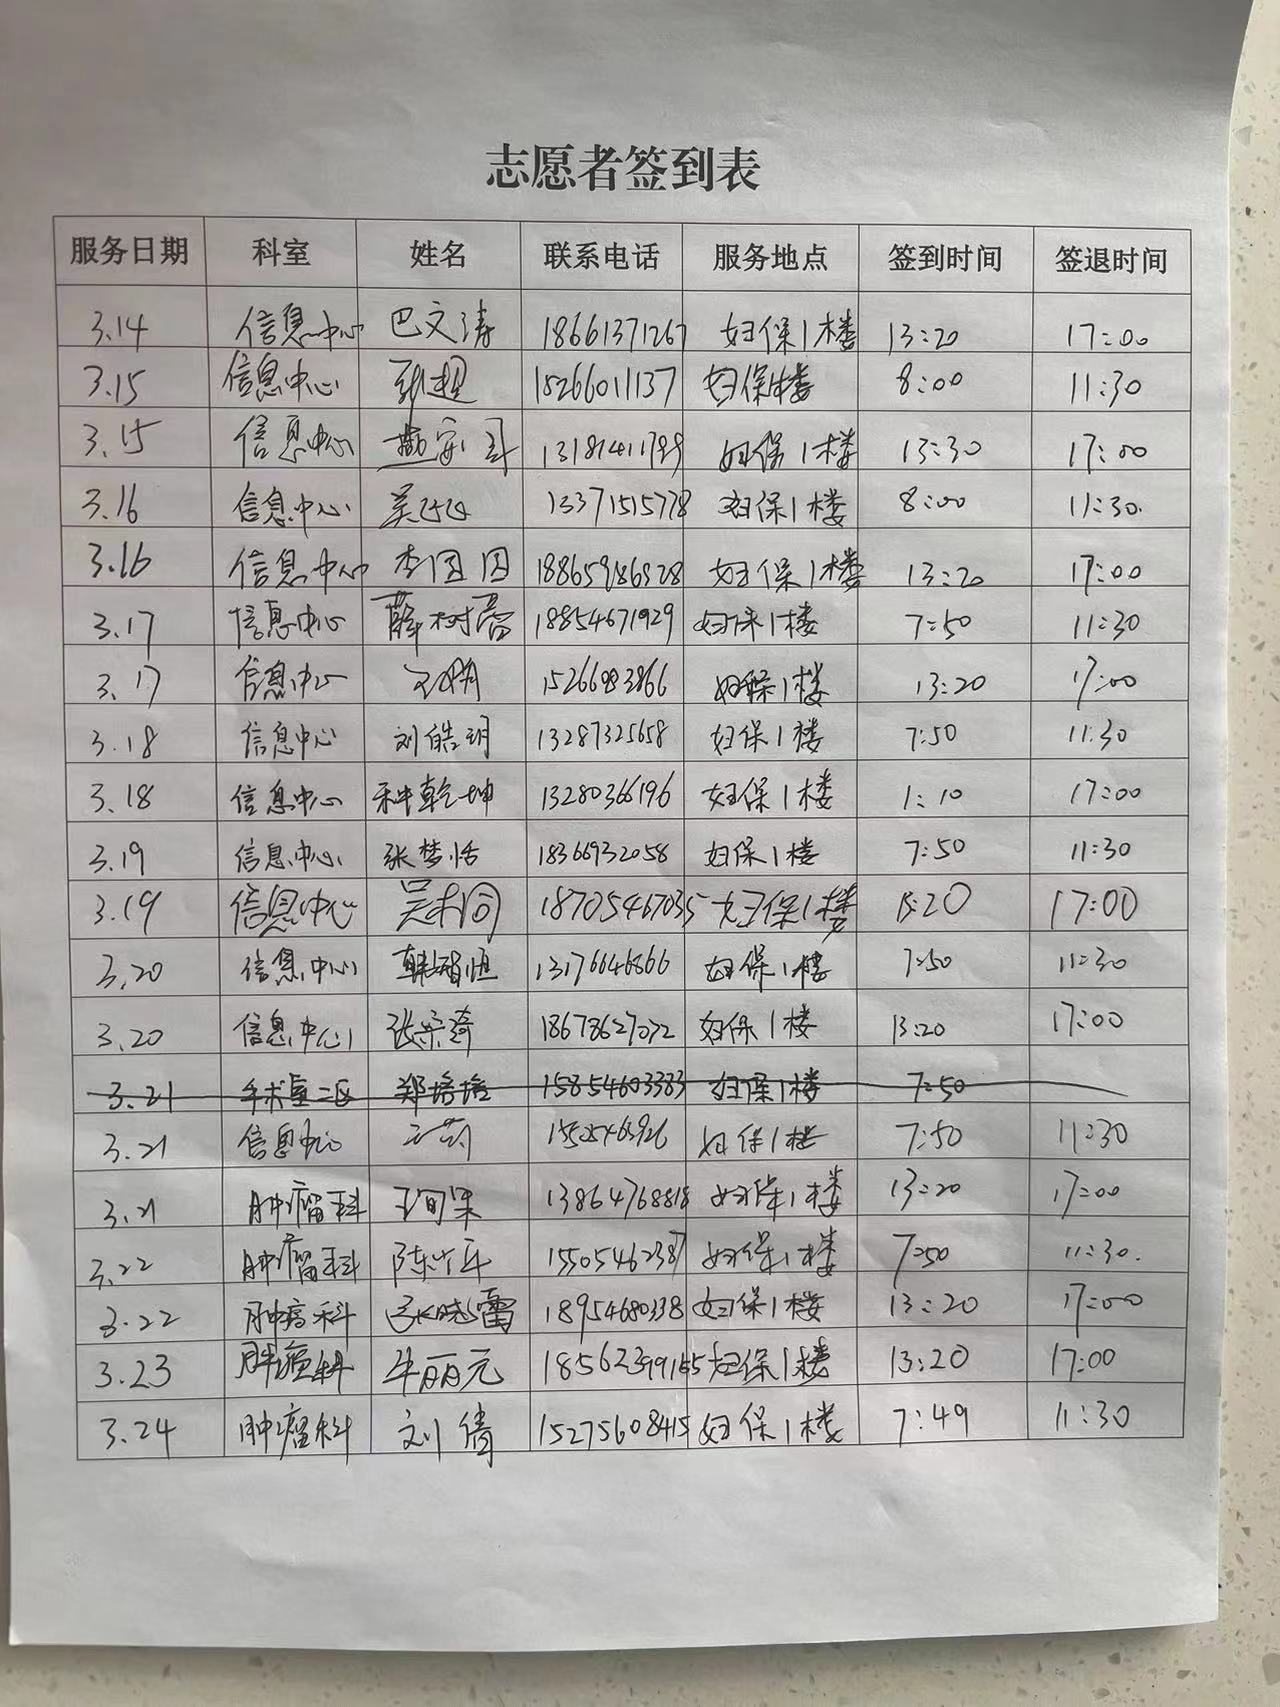 志愿者签到表
服务日期 科室 姓名 联系电话 服务地点 签到时间 签退时间
3.14 信息中心 巴文涛 18661371267 妇保1楼 13:20 17:00
3.15 信息中心 张超 18266011137 妇保1楼 8:00 11:30
3.15 信息中心 妇保1楼 13:30 17:00
3.16 信息中心 13371515778 妇保1楼 8:00 11:30
3.16 信息中心 李囡囡 妇保1楼 13:20 17:00
3.17 信息中心 薛树蓉 18854671929 妇保1楼 7:50 11:30
3.17 信息中心 妇保1楼 13:20 17:00
3.18 信息中心 刘皓玥 13287325658 妇保1楼 7:50 11:30
3.18 信息中心 种乾坤 13280366196 妇保1楼 1:10 17:00
3.19 信息中心 张梦恬 18366932058 妇保1楼 7:50 11:30
3.19 信息中心 18705467035 妇保1楼 13:20 17:00
3.20 信息中心 韩智恒 13176646866 妇保1楼 7:50 11:30
3.20 信息中心 18678627072 妇保1楼 13:20 17:00
3.21 手术室二区 郑培培 15854603383 妇保1楼 7:50
3.21 信息中心 妇保1楼 7:50 11:30
3.21 肿瘤科 13864768818 妇保1楼 13:20 17:00
3.22 肿瘤科 15505462387 妇保1楼 7:50 11:30
3.22 肿瘤科 张晓雷 18954680338 妇保1楼 13:20 17:00
3.23 肿瘤科 牛丽元 18562399155 妇保1楼 13:20 17:00
3.24 肿瘤科 刘倩 15275608415 妇保1楼 7:49 11:30